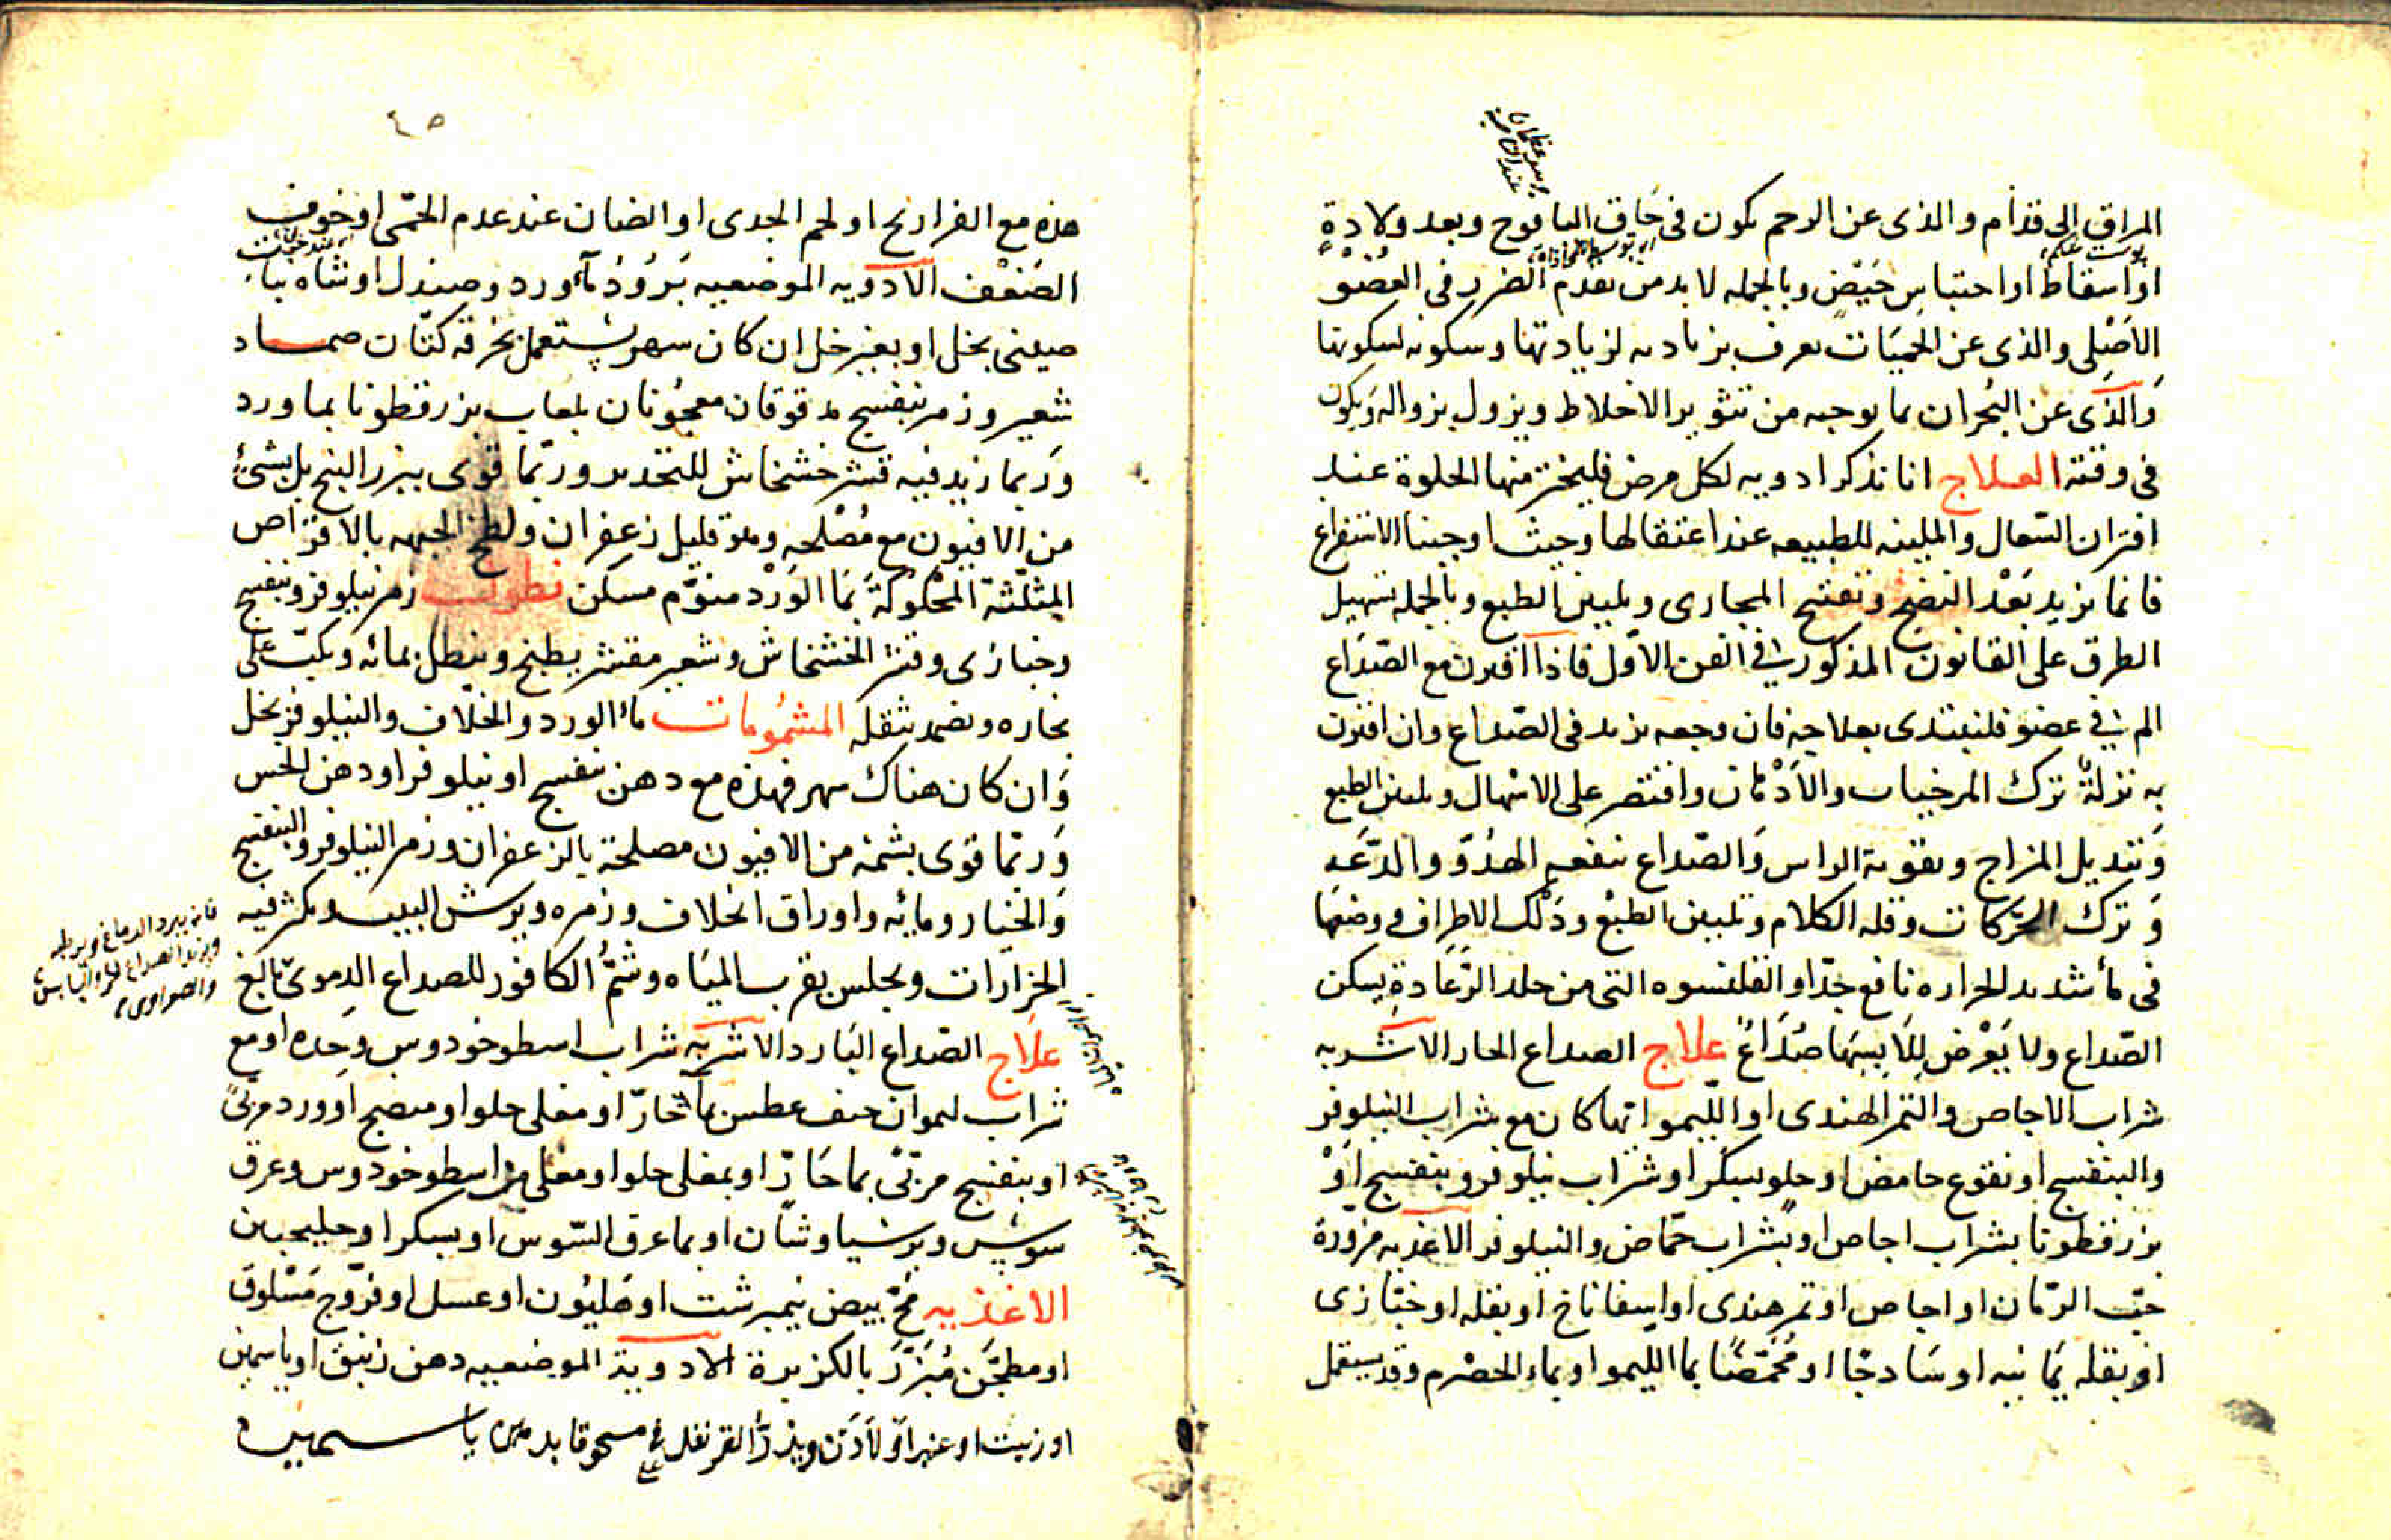 المراق الى قدام والذى عن الرحم يكون فى حاق اليافوخ وبعد ولادة
او اسقاط او احتباس حيض وبالجمله لابد من تقدم الضرر فى العضو
الاصلى والذى عن الحميات يعرف بزيادته لزيادتها وسكونه لسكونها
والذى عن البحران بما يوجبه من تثوير الاخلاط ويزول بزواله ويكون
فى وقته العلاج انا نذكر ادويه لكل مرض فليختر منها الحلوة عند
اقتران السعال والملينه للطبيعه عند اعتقالها وحيث اوجبنا الاستفراغ
فانما نريد بعد النضج وتفتيح المجارى وتليين الطبع وبالجمله تسهيل
الطرق على القانون المذكور فى الفن الاول فاذا اقترن مع الصداع
الم فى عضو فليبتدى بعلاجه فان وجعه يزيد فى الصداع وان اقترن
به نزلة ترك المرخيات والادهان واقتصر على الاسهال وتليين الطبع
وتبديل المزاج وتقوية الراس والصداع ينفعه الهدو والدعه
وترك الحركات وقله الكلام وتليين الطبع ودلك الاطراف ووضعها
فى ماء شديد الحراره نافع جدا والقلنسوه التى من جلد الرعادة يسكن
الصداع ولا يعرض للابسها صداع علاج الصداع الحار الاشربه
شراب الاجاص والتمر الهندى او الليمو ايها كان مع شراب النيلوفر
والبنفسج او نقوع حامض او حلو بسكر او شراب نيلوفر وبنفسج او
بزرقطونا بشراب اجاص او بشراب حماض والنيلوفر الاغذيه مزورة
حب الرمان او اجاص او تمر هندى او اسفاناخ او بقله او خبازى
او بقله يمانيه او ساذجا او محمضا بما الليمو او بماء الحصرم وقد يستعمل
٤٥
هذه مع الفراريج او لحم الجدى او الضان عند عدم الحمى او خوف
الضعف الادويه الموضعيه برود ماء ورد وصندل او شاه
صينى بخل او بغير خل ان كان سهر يستعمل بخرقه كتان ضماد
شعير وزهر بنفسج مدقوقان معجونان بلعاب بزرقطونا بماورد
وربما زيد فيه قشر خشخاش للتخدير وربما قوى ببزر البنج بل بشىء
من الافيون مع مصلحه وهو قليل زعفران ولطخ الجبهه بالاقراص
المثلثة المحكوكة بما الورد منوم مسكن نطول زهر نيلوفر وبنفسج
وخبازى وقشر الخشخاش وشعير مقشر يطبخ وينطل بمائه ويكب على
بخاره ويضمد بثفله المشمومات ماء الورد والخلاف والنيلوفر بخل
وان كان هناك سهر فهذه مع دهن بنفسج او نيلوفر او دهن الخس
وربما قوى بشمة من الافيون مصلحة بالزعفران وزهر النيلوفر والبنفسج
والخيار ومائه واوراق الخلاف وزهره ويرش البيت ويكثر فيه
الخرارات ويجلس بقرب المياه وشم الكافور للصداع الدموى نافع
علاج الصداع البارد الاشربه شراب اسطوخودوس وحده او مع
شراب ليمو ان خيف عطش بماء حار او مغلى حلو او منضج او ورد مربى
او بنفسج مربى بما حار او بمغلى حلو او مغلى من اسطوخودوس وعرق
سوس وبرسياوشان او بما عرق السوس او بسكر او جلنجبين
الاغذيه مح بيض نيمبرشت او هليون او عسل او فروج مسلوق
او مطجن مبزر بالكزبرة الادوية الموضعيه دهن زنبق او ياسمين
او زيت او عنبر او لادن ويذر القرنفل مسحوقا ياسمين
فانه يبرد الدماغ ويرطبه
والصفراوى